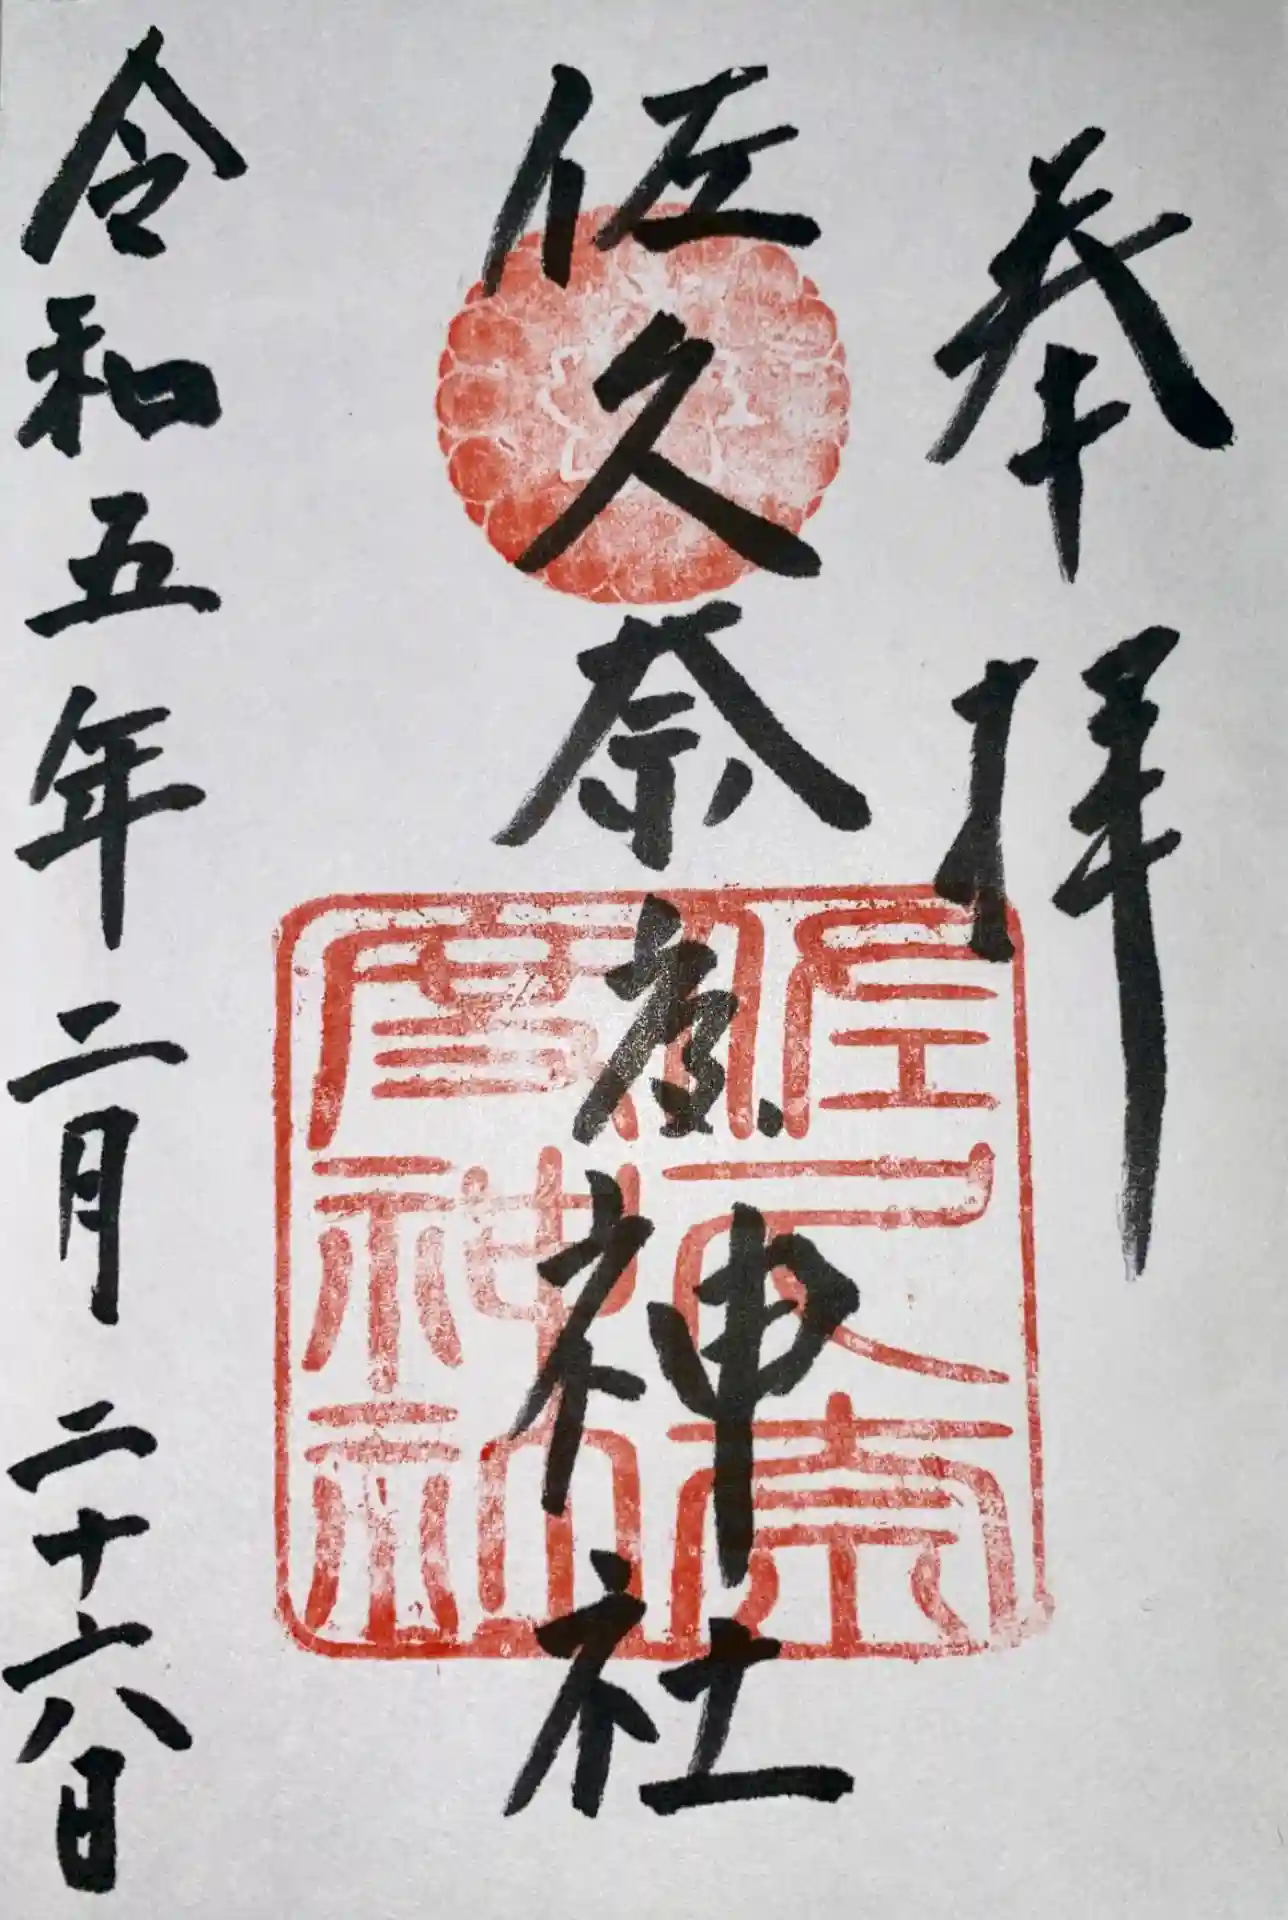 奉拝
佐久奈度神社
佐久奈度神社
令和五年二月二十六日